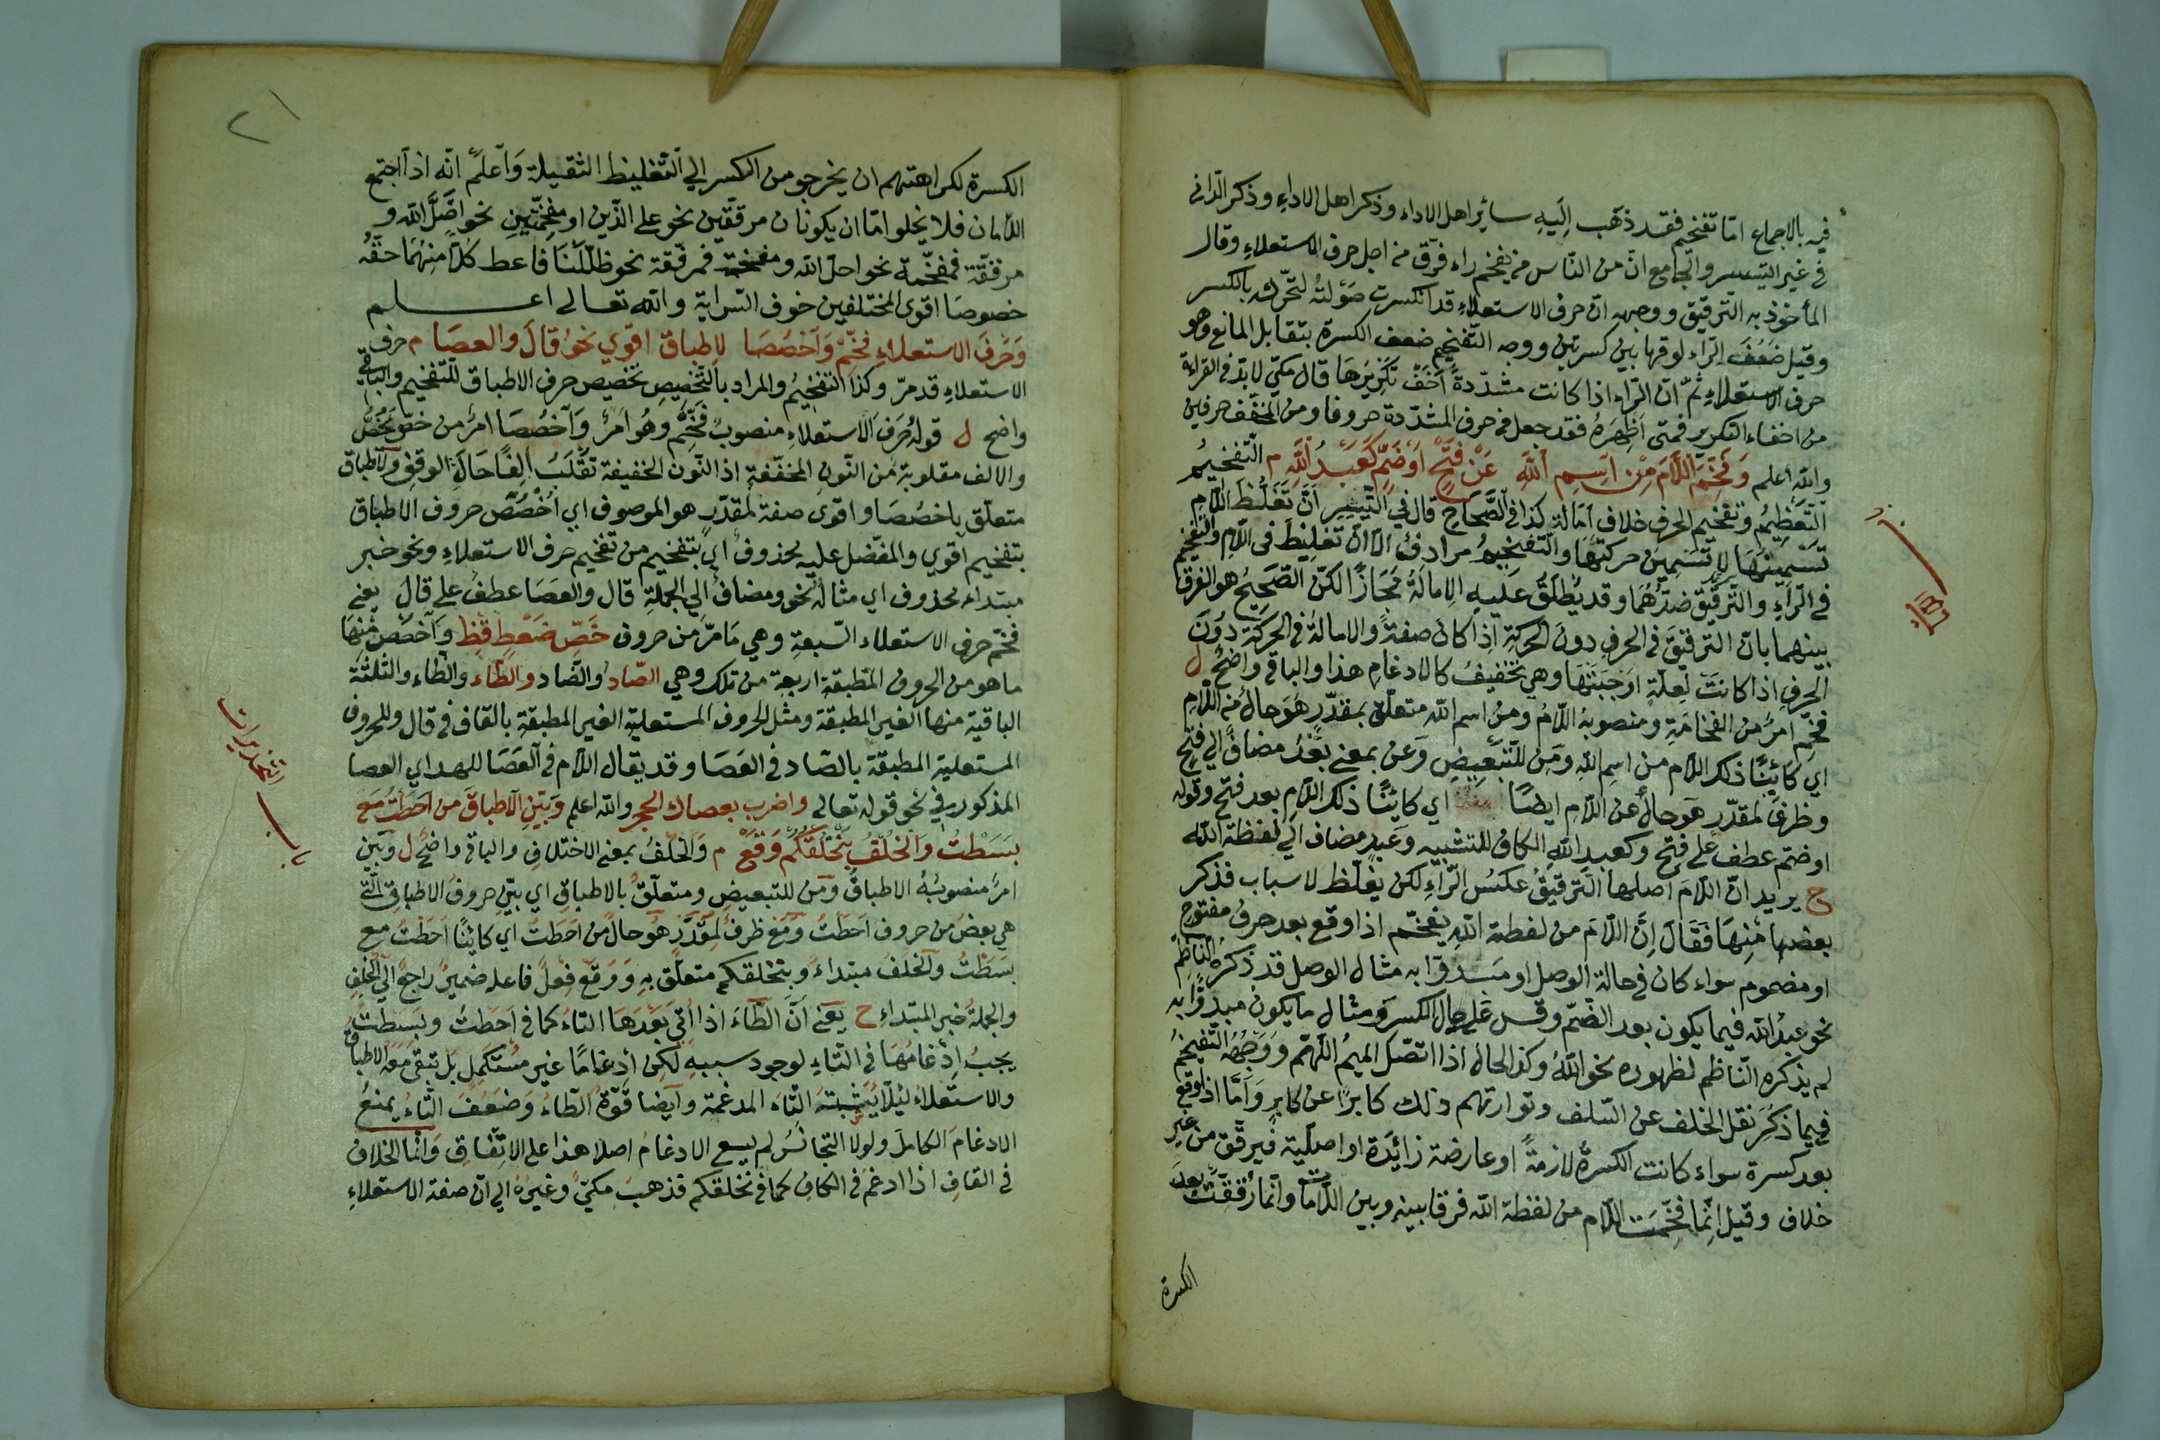 فيه بالاجماع امّا تفخيم فقد ذهب اليه سائر اهل الاداء وذكر اهل الاداء وذكر الدّانى
فى غير التيسير والجامع انّ من النّاس من يفخم راء فرق من اجل حرف الاستعلاء وقال
المأخوذ به الترقيق ووجهه انّ حرف الاستعلاء قد انكسرت صَوْلتهُ لتحرّكه بالكسر
وقيل ضَعُفَ الرّاء لوقوعها بين كسرتين ووجه التّفخيم ضعف الكسرة بتقابل المانع وهو
حرف الاستعلاء ثمّ انّ الرّاء اذا كانت مشدّدةً أَخفّ تكريرَهَا قال مكّي لا بدّ فى القراءة
من اخفاء التكرير فمتى اظهرهُ فقد جعل فى حرف المشدّدة حروفا ومن المخفّف حرفين
والله اعلم وَفَخِّمِ اللَّامَ مِنِ اسْمِ اللَّهِ عَنْ فَتْحٍ أَوْ ضَمٍّ كَعَبْدُ اللَّهِ م التّفخيمُ
التّعظيمُ وتفخيم الحرف خلاف امَالته كذا فى الصَّحَاح قال فى التّيسير انّ تَغلّظَ اللّام
تسمينهَا لا تسمين حركتهَا والتّفخيمُ مرادفٌ الّا انّ تغليظَ فى اللّام والتّفخيم
فى الرّاء والتّرقيق ضدّهُمَا وقد يُطلقُ عليه الامالةُ مَجَازًا لكنّ الصّحيحُ هو الفرق
بينهما بانّ الترقيق فى الحرف دونَ الحركة اذا كان صفةً والامالةُ فى الحركة دُونَ
الحرف اذا كانت لعلّةٍ اوجَبَتهَا وهي تخفيفٌ كالادغام هذا والباقى واضحٌ ل
فخّم امرٌ من الفخامَة ومنصوبهُ اللّامُ ومن اسم الله متعلّق بمقدّرٍ هُوَ حالٌ منه اللّام
اي كائِنًا ذلك اللّام من اسم الله ومِن للتّبعيض وعَن بمعنى بَعْدُ مضافٌ الي فتحٍ
وظرف لمقدّر هو حالٌ عن اللّام ايضًا اي كائنًا ذلك اللّام بعد فتح وقوله
او ضمّ عطف على فتح وكعبد اللهِ الكاف للتشبيه وعَبدِ مضاف الى لفظة الله
ح يريد انّ اللّامَ اصلها التّرقيقُ عكسُ الرّاء لكن يغلّظ لاسباب فذكر
بعضها مِنهَا فَقَالَ إنَّ اللّامَ من لفظة اللّهِ يفخّم اذا وقع بعد حرفٌ مفتوح
او مضموم سواء كان فى حالة الوصل او مَبدوّا به مثال الوصل قد ذكرهُ النّاظم
نحو عبدُ الله فيما يكون بعد الضّم وقس عَلى حال الكسر ومثال ما يكون مبدوًّا به
لم يذكره النّاظم لظهوره نحو اللّهُ وكذا الحال اذا اتصل الميمُ اللّهمّ وَوَجْهُهُ التّفخيمُ
فيما ذكر نقل الخلف عن السّلف وتوارتهم ذلك كابرًا عن كابرٍ وَامَّا اذا وقع
بعد كسرة سواء كانت الكسرةُ لازمةً او عارضة زائدة او اصليّة فيرقّق من غير
خلاف وقيل انّما فخّمت اللّام من لفظة الله فرقا بينه وبين اللّات وانّما رُققّت بعد
الكسرة
الكسرة لكراهتهم ان يخرجو من الكسر الى التّغليظ الثقيلة وَاعلمْ انّه اذا اجتمع
اللّامان فلا يخلو امّا ان يكونان مرققّين نحو على الذّين او مفخّمتين نحو اضَلَّ الله و
مرققّة فمفخّمة نحو احلّ الله ومفخمة فمرقّقة نحو ظَلّلْنَا فاعط كُلًّا منهُمَا حقّهُ
خصوصًا اقوى المختلفين خوف السّراية والله تعالى اعلم
وَحَرفَ الاستعلاءِ فَخِّمْ وَاخْصُصَا لاطباقَ اقوي نحوُ قالَ والعصَا م حرف
الاستعلاءِ قد مرّ وكذا التفخيمُ والمراد بالتّخصيص تخصيص حرف الاطباق للتّفخيم والباقى
واضح ل قولهُ حرفَ الاستعلاءِ منصوبٌ فخِّم وَهُو امرٌ وَاخصُصَا امرٌ من خصّ يخصّ
والالف مقلوبة من النّون المخففّة اذ النّون الخفيفة تقلبُ الفًا حَالة الوقف ولاطباق
متعلّق باخصُصَا واقوى صفة لمقدّرٍ هو الموصوف اي اخْصُصْ حروف الاطباق
بتفخيم اقوي والمفضّل عليه محذوفٌ ايْ بتفخيم من تفخيم حرف الاستعلاءِ ونحو خبر
مبتداء محذوف اي مثاله نحو ومضافٌ الى الجملة قال والعَصَا عطفٌ على قال يعني
فخّم حرف الاستعلاء السّبعة وهي مَامرّ من حروف خصّ ضغطٍ قظ واخصصْ منهَا
ما هو من الحروف المطبقة اربعة من تلك وهي الصّادُ والضّاد والطّاء والظّاء والثلثة
الباقية منها الغير المطبقة ومثل الحروف المستعلية الغير المطبقة بالقاف فى قال وللحروف
المستعلية المطبقة بالصّاد فى العَصَا وقد يقال اللّام فى العَصَا للعهد اي العصا
المذكور فى نحو قوله تعالى واضرب بعصاك الحجر والله اعلم وَبَيِّنِ الاطباقَ من احَطتُ مَع
بَسَطْتُ وَالخُلْفُ بِنَخْلُقكُمْ وَقَعْ م والخلفُ بمعنى الاختلاف والباقى واضحٌ ل وَبيّن
امرٌ منصوبُهُ الاطباق ومن للتبعيض ومتعلّقٌ بالاطباق اي بيّن حروف الاطباق الّتي
هي بعضٌ من حروف احَطتُ وَمَعَ ظرفٌ لمقدّرٍ هُو حالٌ من احَطتُ اي كائنًا احَطتُ مع
بسَطتُ والخلفُ مبتداءٌ وبنخلقكم متعلّق بهِ وَوَقعَ فعلٌ فاعله ضميرٌ راجعٌ الى الخلف
والجملة خبر المبتداء ح يَعني أنَّ الطّاءَ اذا اتى بَعْدَهَا التاءُ كما فى احَطتُ وبسَطتُ
يجبُ ادْغامُهَا فى التّاءِ لوجود سببه لكن ادغامًا غير مُستكملٍ بَل تبقى مَعَهُ الاطباقُ
والاستعلاءُ لئلّا يشتبهَ التّاء المدغمة وايضا قوّةُ الطّاءُ وَضعفَ التّاءُ يمنعُ
الادغامَ الكاملَ ولولا التجانسُ لم يسع الادغامُ اصلا هذا على الاتّفاق وانّما الخلاف
فى القاف اذا ادغم فى الكاف كما فى نخلقكم فذهبَ مكيّ وغيرهُ الى انّ صفة الاستعلاءِ
باب التحذيرات